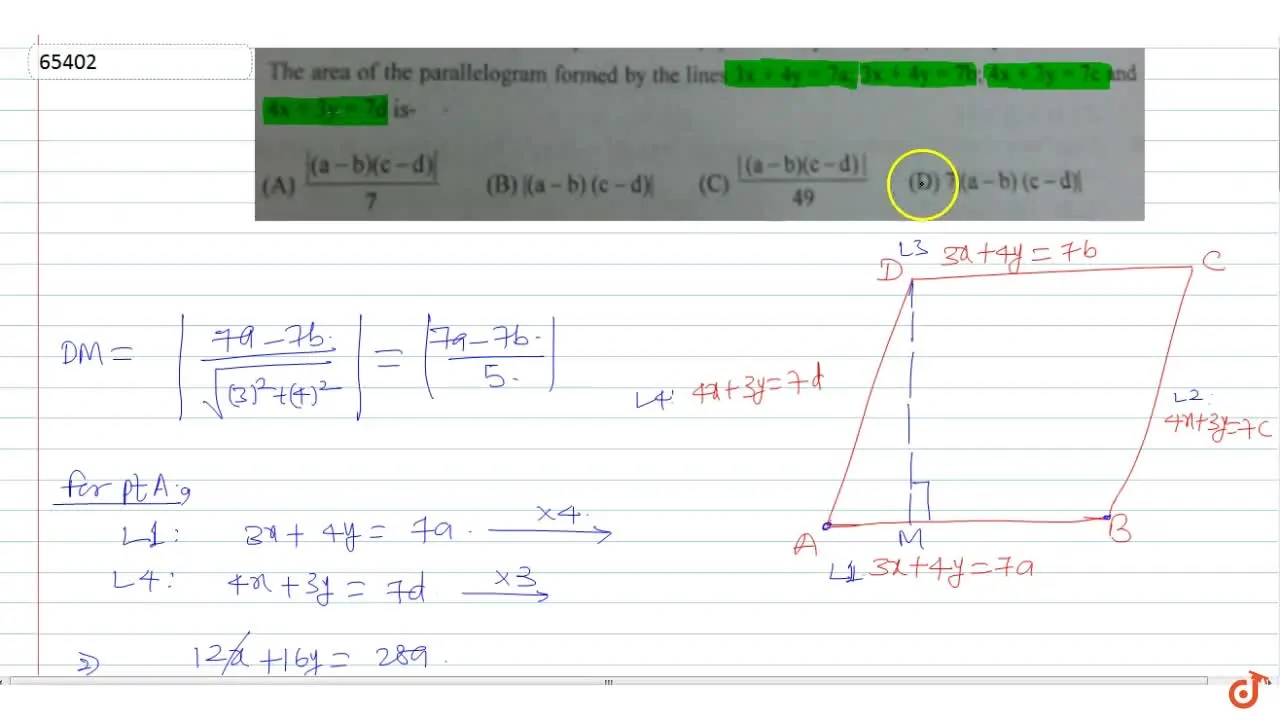 65402
The area of the parallelogram formed by the lines 3x + 4y = 7a; 3x + 4y = 7b; 4x + 3y = 7c and
4x + 3y = 7d is-
(A) |(a – b)(c – d)| / 7 (B) |(a – b) (c – d)| (C) |(a – b)(c – d)| / 49 (D) 7|(a – b) (c – d)|
L3 3x+4y = 7b
D C
DM = | 7a-7b. / √(3)²+(4)² | = | 7a-7b. / 5. |
L4: 4x+3y=7d
L2:
4x+3y=7C
for pt A:,
L1: 3x + 4y = 7a. ×4
A M B
L1 3x+4y=7a
L4: 4x+3y = 7d ×3
12x+16y = 28a.